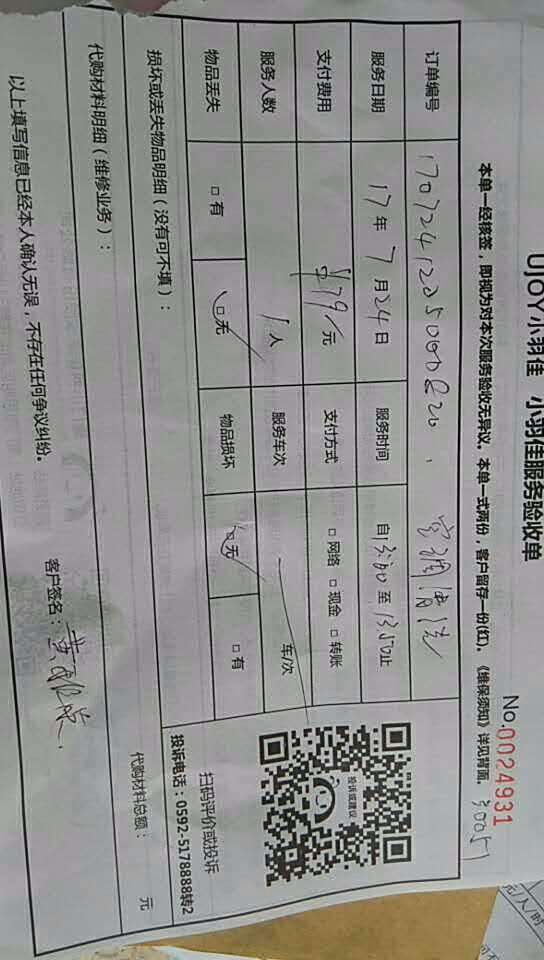 UJOY小羽佳 小羽佳服务验收单
No.0024931
本单一经核签，即视为对本次服务验收无异议。本单一式两份，客户留存一份(红)。《维保须知》详见背面。
30051
订单编号 空调清洗
服务日期 17年7月24日 服务时间 自13:00至13:50止
支付费用 ¥79/元 支付方式 □网络 □现金 □转账
服务人数 1人 服务车次 车/次
物品丢失 □有 □无 物品损坏 □无 □有
投诉或建议
扫码评价或投诉
投诉电话：0592-5178888转2
损坏或丢失物品明细（没有可不填）：
代购材料明细（维修业务）： 代购材料总额： 元
以上填写信息已经本人确认无误，不存在任何争议纠纷。 客户签名：
元/人/时